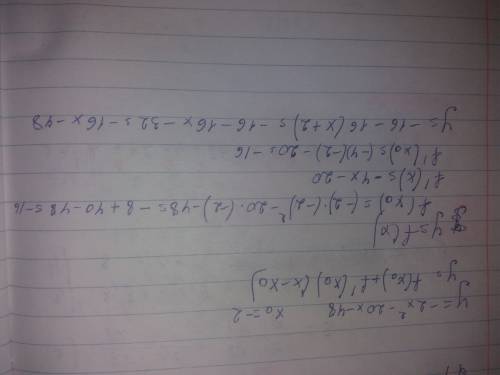 y = -2x² - 20x - 48   x₀ = -2
y = f(x₀) + f'(x₀)(x - x₀)
y = f(x)
f(x₀) = (-2)·(-2)² - 20·(-2) - 48 = -8 + 40 - 48 = -16
f'(x) = -4x - 20
f'(x₀) = (-4)(-2) - 20 = -16
y = -16 - 16(x + 2) = -16 - 16x - 32 = -16x - 48